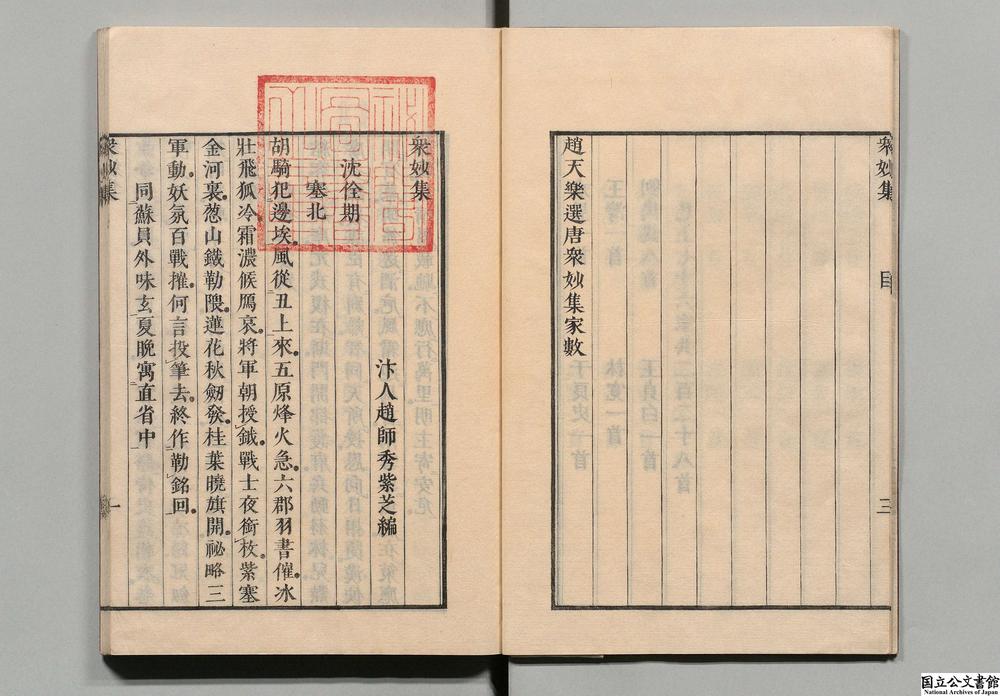 衆妙集
目
三
趙天樂選唐衆妙集家數
衆妙集
汴人趙師秀紫芝編
沈佺期
塞北
胡騎犯邊埃風從丑上來五原烽火急六郡羽書催冰
壯飛狐冷霜濃候鴈哀將軍朝授鉞戰士夜銜枚紫塞
金河裏葱山鐵勒隈蓮花秋劒發桂葉曉旗開祕略三
軍動妖氛百戰摧何言投筆去終作勒銘回
同蘇員外味玄夏晚寓直省中
衆妙集
一
国立公文書館
National Archives of Japan